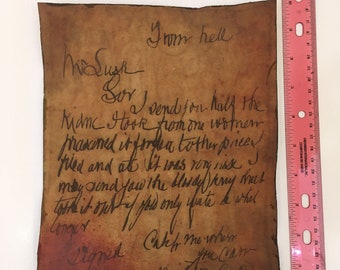 From hell
Mr Lusk
Sor
I send you half the
Kidne I took from one women
prasarved it for you tother piece I
fried and ate it was very nise I
may send you the bloody knif that
took it out if you only wate a whil
longer
signed Catch me when
you Can